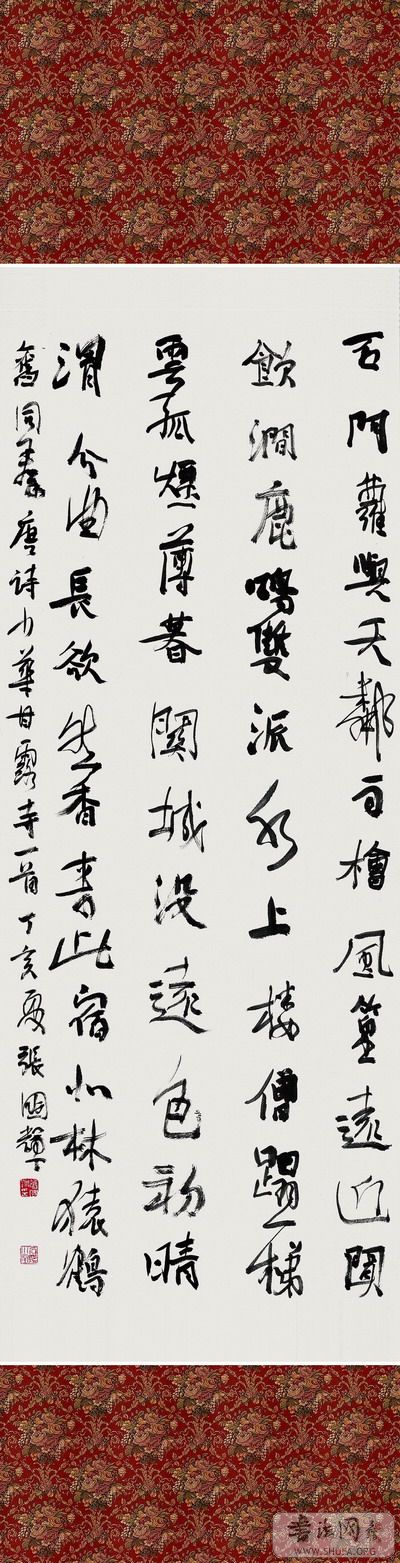 石門蘿與天鄰雨檜風篁遠近聞
飲澗鹿鳴雙派水上樓僧蹋一梯
雲孤煙薄暮關城没遠色初晴
渭分曲長欲然香書此宿北林猿鶴
舊同羣唐詩少華甘露寺一首丁亥夏張國輝
书法网
WWW.SHUFA.ORG